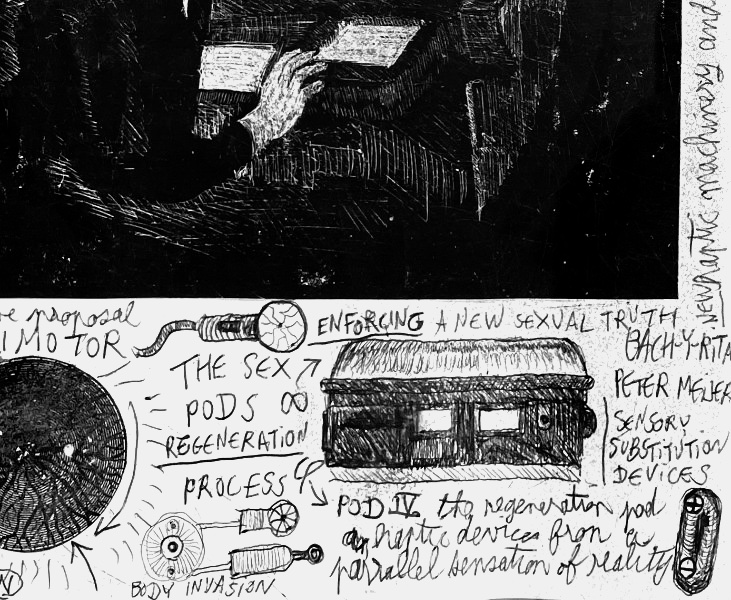 NEW haptic machinery and
proposal
IMOTOR
ENFORCING A NEW SEXUAL TRUTH
BACH-Y-RITA
PETER MEIJER
SENSORY
SUBSTITUTION
DEVICES
THE SEX
PODS ∞
REGENERATION
PROCESS
POD IV the regeneration pod
haptic devices from a
parallel sensation of reality
BODY INVASION